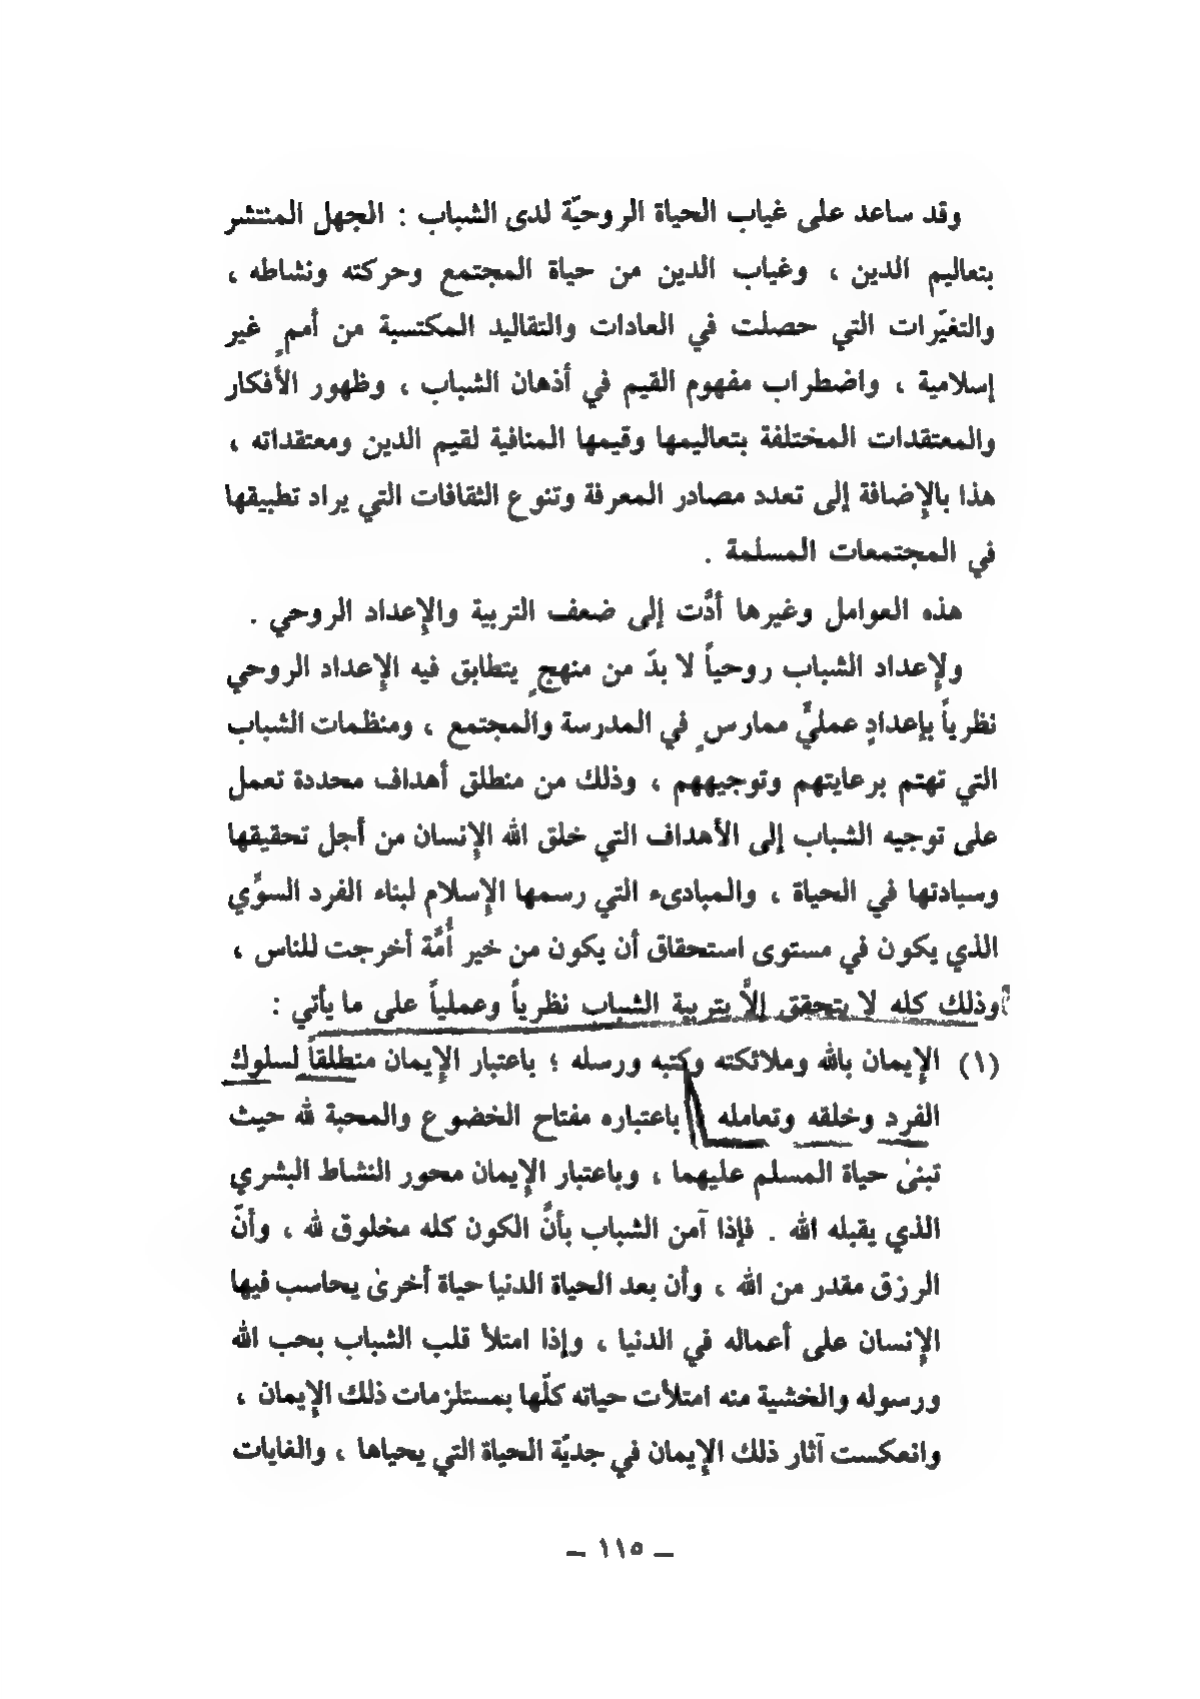 وقد ساعد على غياب الحياة الروحيّة لدى الشباب : الجهل المنتشر
بتعاليم الدين ، وغياب الدين من حياة المجتمع وحركته ونشاطه ،
والتغيّرات التي حصلت في العادات والتقاليد المكتسبة من أممٍ غير
إسلامية ، واضطراب مفهوم القيم في أذهان الشباب ، وظهور الأفكار
والمعتقدات المختلفة بتعاليمها وقيمها المنافية لقيم الدين ومعتقداته ،
هذا بالإضافة إلى تعدد مصادر المعرفة وتنوع الثقافات التي يراد تطبيقها
في المجتمعات المسلمة .
هذه العوامل وغيرها أدَّت إلى ضعف التربية والإعداد الروحي .
ولإعداد الشباب روحياً لا بدّ من منهجٍ يتطابق فيه الإعداد الروحي
نظرياً بإعدادٍ عمليٍّ ممارسٍ في المدرسة والمجتمع ، ومنظمات الشباب
التي تهتم برعايتهم وتوجيههم ، وذلك من منطلق أهداف محددة تعمل
على توجيه الشباب إلى الأهداف التي خلق الله الإنسان من أجل تحقيقها
وسيادتها في الحياة ، والمبادىء التي رسمها الإسلام لبناء الفرد السوِّي
الذي يكون في مستوى استحقاق أن يكون من خير أُمَّة أخرجت للناس ،
وذلك كله لا يتحقق إلاَّ بتربية الشباب نظرياً وعملياً على ما يأتي :
(١) الإيمان بالله وملائكته وكتبه ورسله ؛ باعتبار الإيمان منطلقاً لسلوك
الفرد وخلقه وتعامله باعتباره مفتاح الخضوع والمحبة لله حيث
تبنىٰ حياة المسلم عليهما ، وباعتبار الإيمان محور النشاط البشري
الذي يقبله الله . فإذا آمن الشباب بأنَّ الكون كله مخلوق لله ، وأنّ
الرزق مقدر من الله ، وأن بعد الحياة الدنيا حياة أخرىٰ يحاسب فيها
الإنسان على أعماله في الدنيا ، وإذا امتلأ قلب الشباب بحب الله
ورسوله والخشية منه امتلأت حياته كلّها بمستلزمات ذلك الإيمان ،
وانعكست آثار ذلك الإيمان في جديّة الحياة التي يحياها ، والغايات
– ١١٥ –